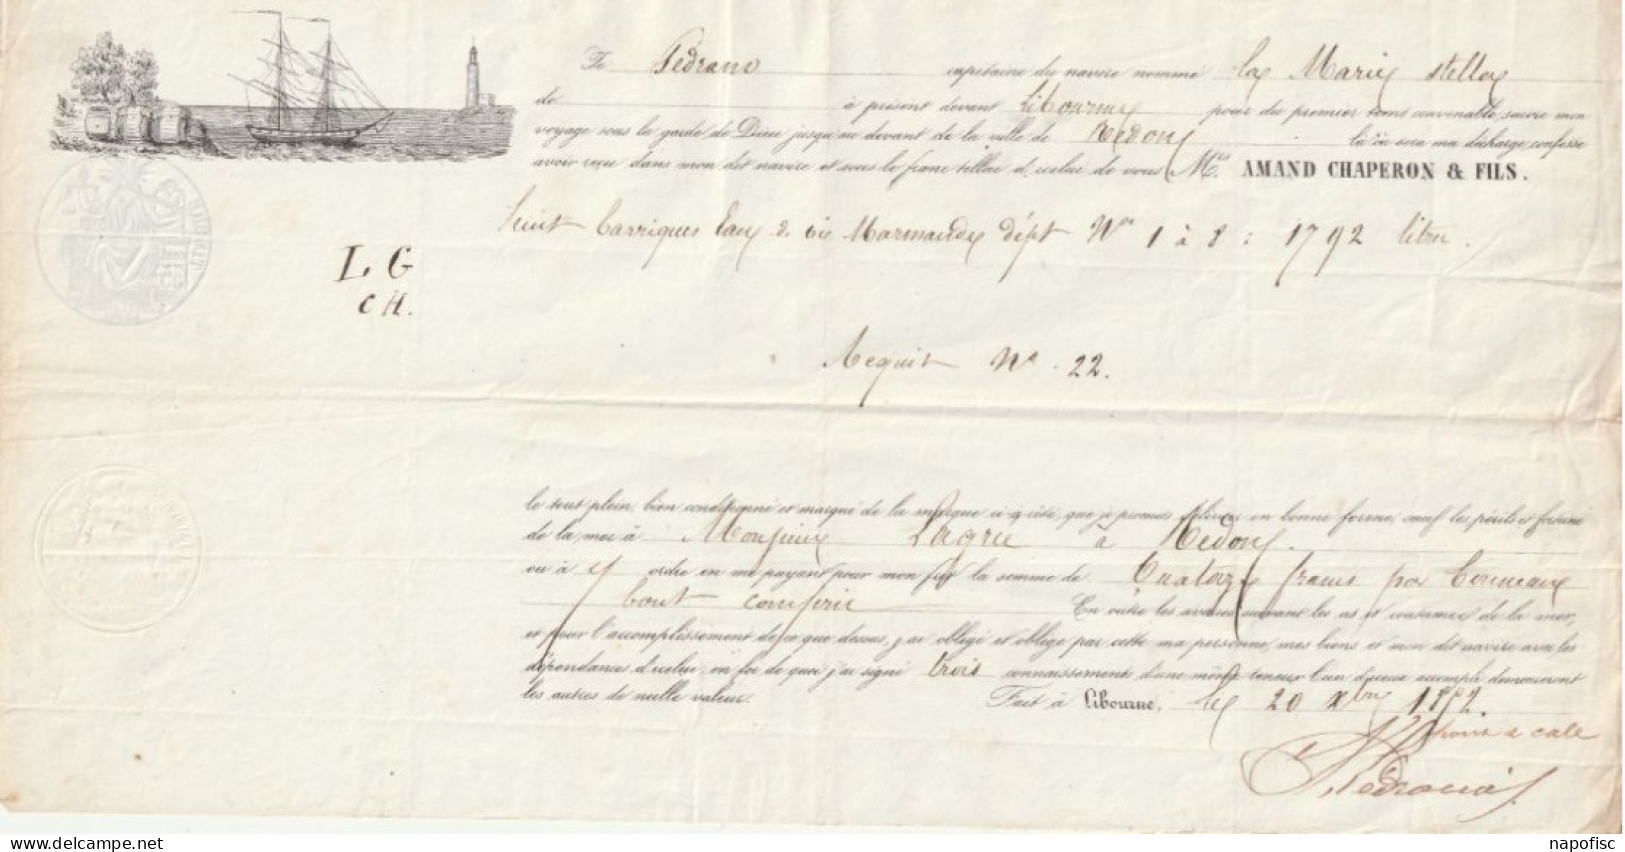 Je Pedrano capitaine du navire nommé la Marie stella
de à présent devant Libourne pour du premier tems convenable, suivre mon
voyage sous la garde de Dieu jusqu'au devant de la ville de Redon là où sera ma décharge, confesse
avoir reçu dans mon dit navire et sous le franc tillac d'icelui de vous Mrs. AMAND CHAPERON & FILS.
huit barriques Eau de vie Marmande dépt Nos 1 à 8 : 1792 litres.
L G
C H.
Acquit No. 22.
le tout plein, bien conditionné et marqué de la marque ci à côté, que je promets délivrer en bonne forme, sauf les périls et fortune
de la mer à Monsieur Lagrée à Redon.
ou à s/ ordre en me payant pour mon fret la somme de Quatorze francs par tonneau
tout compris En outre les avaries suivant les us et coutumes de la mer,
et pour l'accomplissement de ce que dessus, j'ai obligé et oblige par cette ma personne, mes biens et mon dit navire avec les
dépendances d'icelui; en foi de quoi j'ai signé trois connaissements d'une même teneur l'un d'iceux accompli demeureront
les autres de nulle valeur. Fait à Libourne, le 20 Xbre 1852.
Pedrono
napofisc